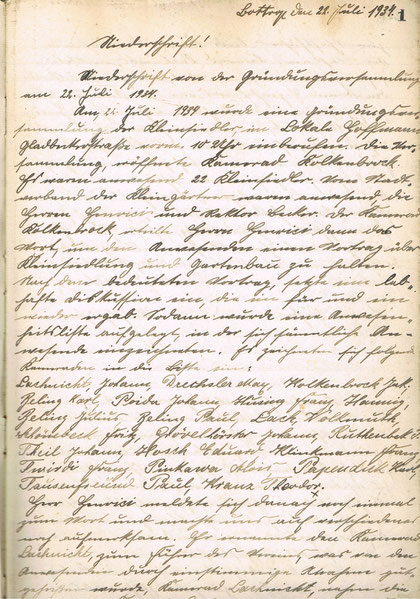 Bottrop, den 22. Juli 1934. 1
Niederschrift!
Niederschrift von der Gründungsversammlung
am 22. Juli 1934.
Am 22 Juli 1934 wurde eine Gründungsver-
sammlung der Kleinsiedler im Lokale Hoffmann
Gladbeckerstraße vorm. 10 Uhr einberufen. Die Ver-
sammlung, eröffnete Kamerad Kolkenbrock.
Es waren anwesend 22 Kleinsiedler. Vom Stadt-
verband der Kleingärtner waren anwesend die
Herren Henrici und Rektor Becker. Der Kamerad
Kolkenbrock, erteilt Herrn Henrici dann das
Wort, um den Anwesenden einen Vortrag über
Kleinsiedlung und Gartenbau zu halten.
Nach dem bedeuteten Vortrag, setzte eine leb-
hafte Diskussion ein, die ein für und ein
wieder ergab. Sodann wurde eine Anwesen-
heitsliste aufgelegt, in der sich sämtliche An-
wesende einzeichneten. Es zeichneten sich folgende
Kameraden in die Liste ein:
Lachnicht, Johann, Drechsler May, Kolkenbrock Jak.
Reling Karl, Johann, Hüning Franz, Hannig
Reling Julius, Reling Paul, Lach, Vollmuth,
Fritz, Grövelhörster Johann, Ruthenbeck
Theil Johann, Hosch Eduard, Klinkmann Franz
Franz, Pinkawa Alois - Papenduk Karl,
Tausenfreund Paul, Kranz Theodor.
Herr Henrici meldete sich danach noch einmal
zum Wort und machte uns auf verschiedenes
noch aufmerksam. Er ernannte den Kameraden
Lachnicht, zum Führer des Vereins, was von den
Anwesenden durch einstimmige Annahme gut-
geheißen wurde, Kamerad Lachnicht, nahm die